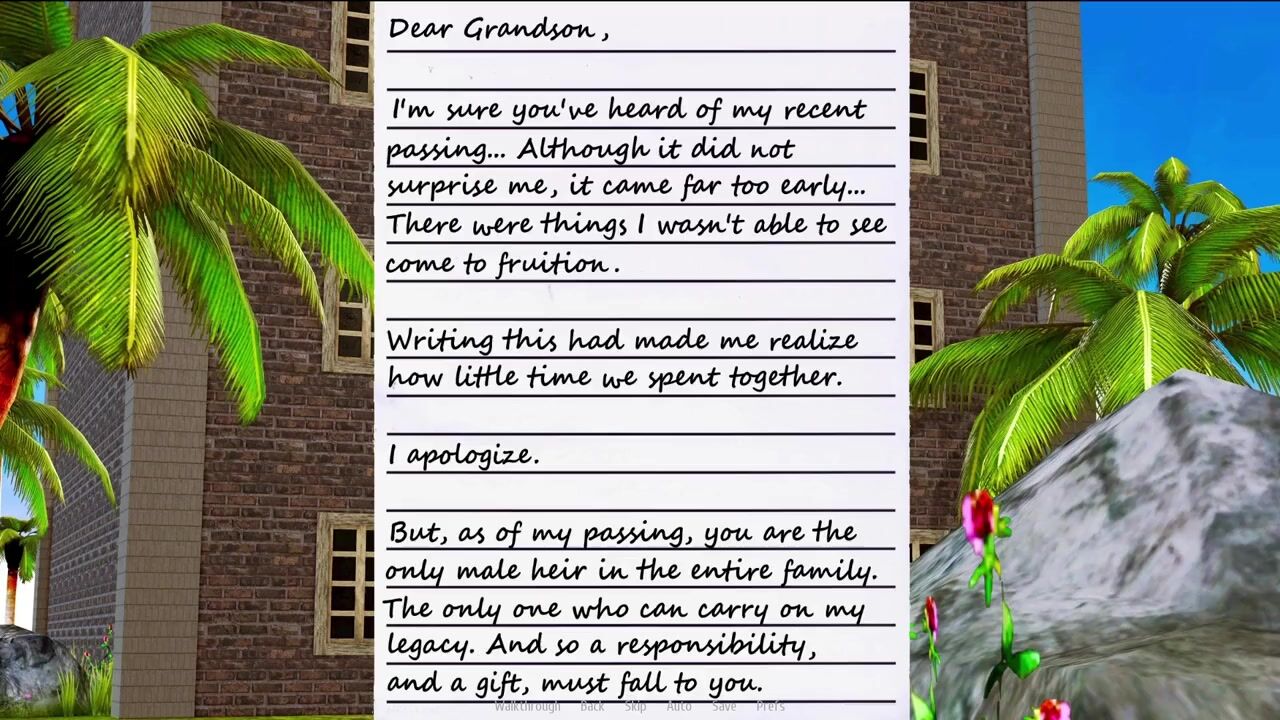 Dear Grandson,
I'm sure you've heard of my recent
passing... Although it did not
surprise me, it came far too early...
There were things I wasn't able to see
come to fruition.
Writing this had made me realize
how little time we spent together.
I apologize.
But, as of my passing, you are the
only male heir in the entire family.
The only one who can carry on my
legacy. And so a responsibility,
and a gift, must fall to you.
Walkthrough Back Skip Auto Save Prefs